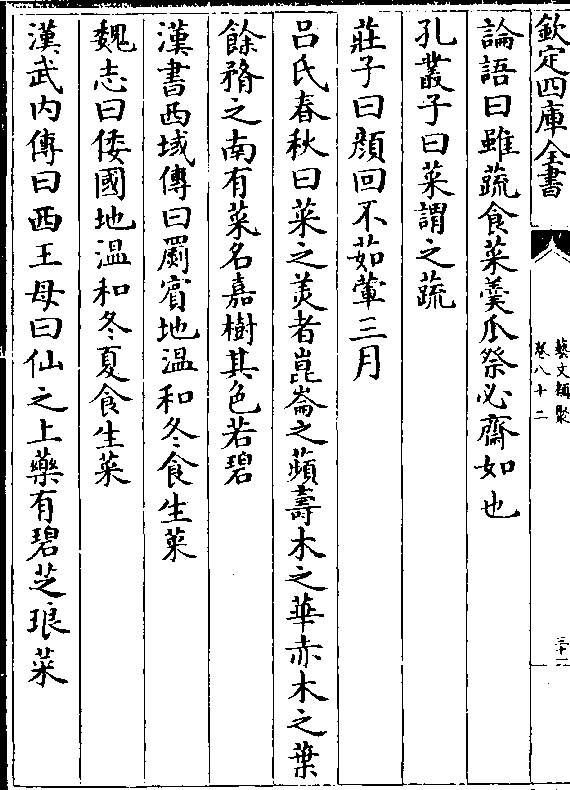 欽定四庫全書
藝文類聚
卷八十二
三十一
論語曰雖蔬食菜羹瓜祭必齋如也
孔叢子曰菜謂之蔬
莊子曰顔回不茹葷三月
吕氏春秋曰菜之美者崑崙之蘋壽木之華赤木之葉
餘瞀之南有菜名嘉樹其色若碧
漢書西域傳曰罽賔地温和冬食生菜
魏志曰倭國地温和冬夏食生菜
漢武内傳曰西王母曰仙之上藥有碧芝琅菜